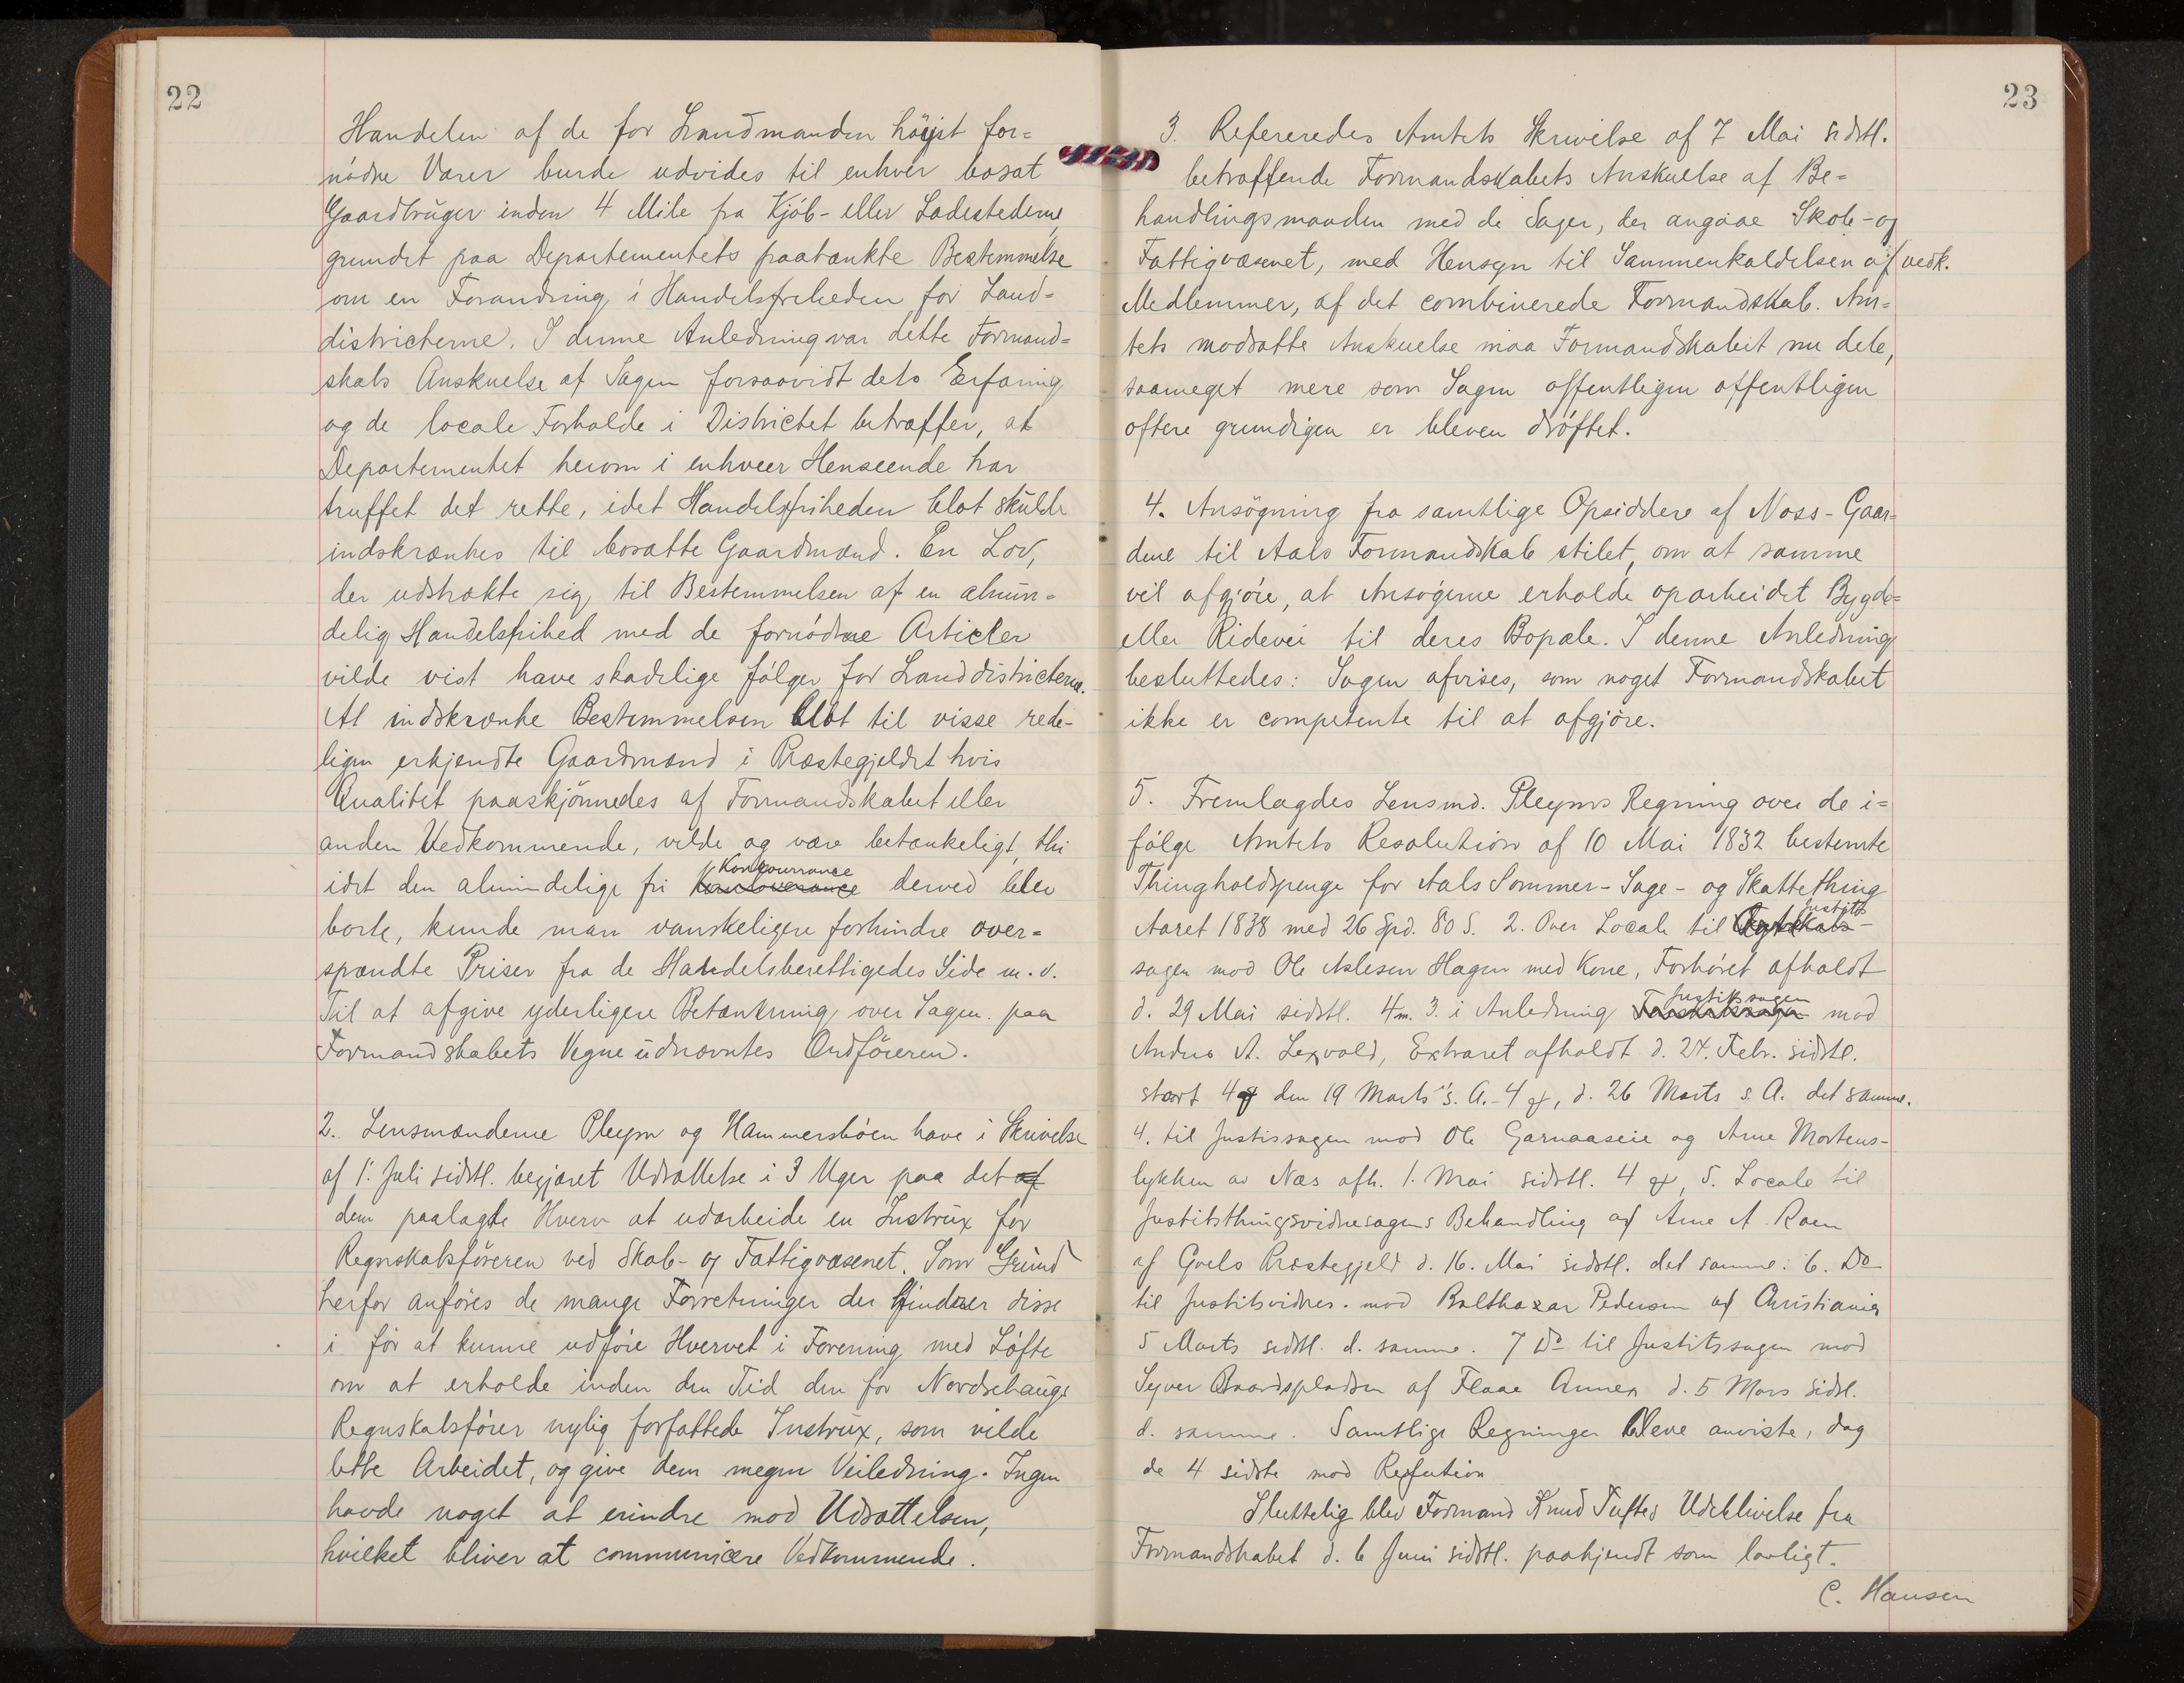 22
Handelen af de for Landmanden höist for=
nödne Varer burde udvides til enhver bosat
Gaardbruger inden 4 Mile fra Kjöb- eller Ladestederne,
grundet paa Departementets paatænkte Bestemmelse
om en Forandring i Handelsfriheden for Land=
districterne. I denne Anledning var dette Formand=
skabs Anskuelse af Sagen forsaavidt dets Erfaring
og de locale Forholde i Districtet betræffer, at
Departementet herom i enhveer Henseende har
truffet det rette, idet Handelsfriheden blot skulde
indskrænkes til bosatte Gaardmænd. En Lov,
der udstrakte sig til Bestemmelsen af en almin=
delig Handelsfrihed med de fornödne Articler
vilde vist have skadelige fölger for Landdistricterne.
At indskrænke Bestemmelsen blot til visse rede-
ligen erkjendte Gaardmænd i Præstegjeldet hvis
Qualitet paaskjönnedes af Formandskabet eller
anden Vedkommende, vilde og være betænkeligt, thi
idet den almindelige fri Konkourrance derved blev
borte, kunde man vanskeligere forhindre over=
spændte Priser fra de Handelsberettigedes Side m. v.
Til at afgive yderligere Betænkning over Sagen paa
Formandskabets Vegne udnævntes Ordföreren.
2. Lensmænderne Pleym og Hammersböen have i Skrivelse
af 1. Juli sidstl. begjæret Udsættelse i 3 Uger paa det af
dem paalagte Hverv at udarbeide en Instrux for
Regnskabsföreren ved Skole- og Fattigvæsenet. Som Grund
herfor anföres de mange Forretninger der hindrer disse
i för at kunne udföre Hvervet i Forening med Löfte
om at erholde inden den Tid den for Nordrehaugs
Regnskabsförer nylig forfattede Instrux, som vilde
lette Arbeidet, og give dem megen Veiledning. Ingen
havde noget at erindre mod Udsættelsen,
hvilket bliver at communicere Vedkommende.
23
3. Refereredes Amtets Skrivelse af 7 Mai sidstl.
betræffende Formandskabets Anskuelse af Be=
handlingsmaaden med de Sager, der angaae Skole- og
Fattigvæsenet, med Hensyn til Sammenkaldelsen af vedk.
Medlemmer, af det combinerede Formandskab. Am=
tets modsatte Anskuelse maa Formandskabet nu dele,
saameget mere som Sagen offentligen offentligen
oftere grundigen er bleven dröftet.
4. Ansögning fra samtlige Opsiddere af Noss-Gaar=
dene til Aals Formandskab stilet, om at samme
vil afgjöre, at Ansögerne erholde oparbeidet Bygde=
eller Ridevei til deres Bopæle. I denne Anledning
besluttedes: Sagen afvises, som noget Formandskabet
ikke er competente til at afgjöre.
5. Fremlagdes Lensmd. Pleyms Regning over de i=
fölge Amtets Resolution af 10 Mai 1832 bestemte
Thingholdspenge for Aals Sommer- Sage- og Skattething
Aaret 1838 med 26 Spd. 80 S. 2. Over Locale til Justits-
sagen mod Ole Aslesen Hagen med Kone, Forhöret afholdt
d. 29 Mai sidstl. 4 m. 3. i Anledning Justitssagen mod
Andreas A. Lexvold, Extraret afholdt d. 24. Febr. sidstl.
start 4 den 19 Marts s. A. - 4, d. 26 Marts s. A. det samme.
4. til Justissagen mod Ole Garnaaseie og Arne Mortens-
lykken av Næs afh. 1. Mai sidstl. 4, 5. Locale til
Justitsthingsvidnesagens Behandling af Arne A. Roen
af Goels Præstegjeld d. 16. Mai sidstl. det samme: 6. Do
til Justitsvidnes. mod Balthazar Pedersen af Christiania
5 Marts sidstl. d. samme. 7 Do til Justitssagen mod
Syver Baardspladsen af Flaae Annex d. 5 Mars sidsl.
d. samme. Samtlige Regninger bleve anviste, dog
de 4 sidste mod Refution
Sluttelig blev Formand Knud Tuftes Udeblivelse fra
Formandskabet d. 6 Juni sidstl. paakjendt som lovligt.
C. Hansen